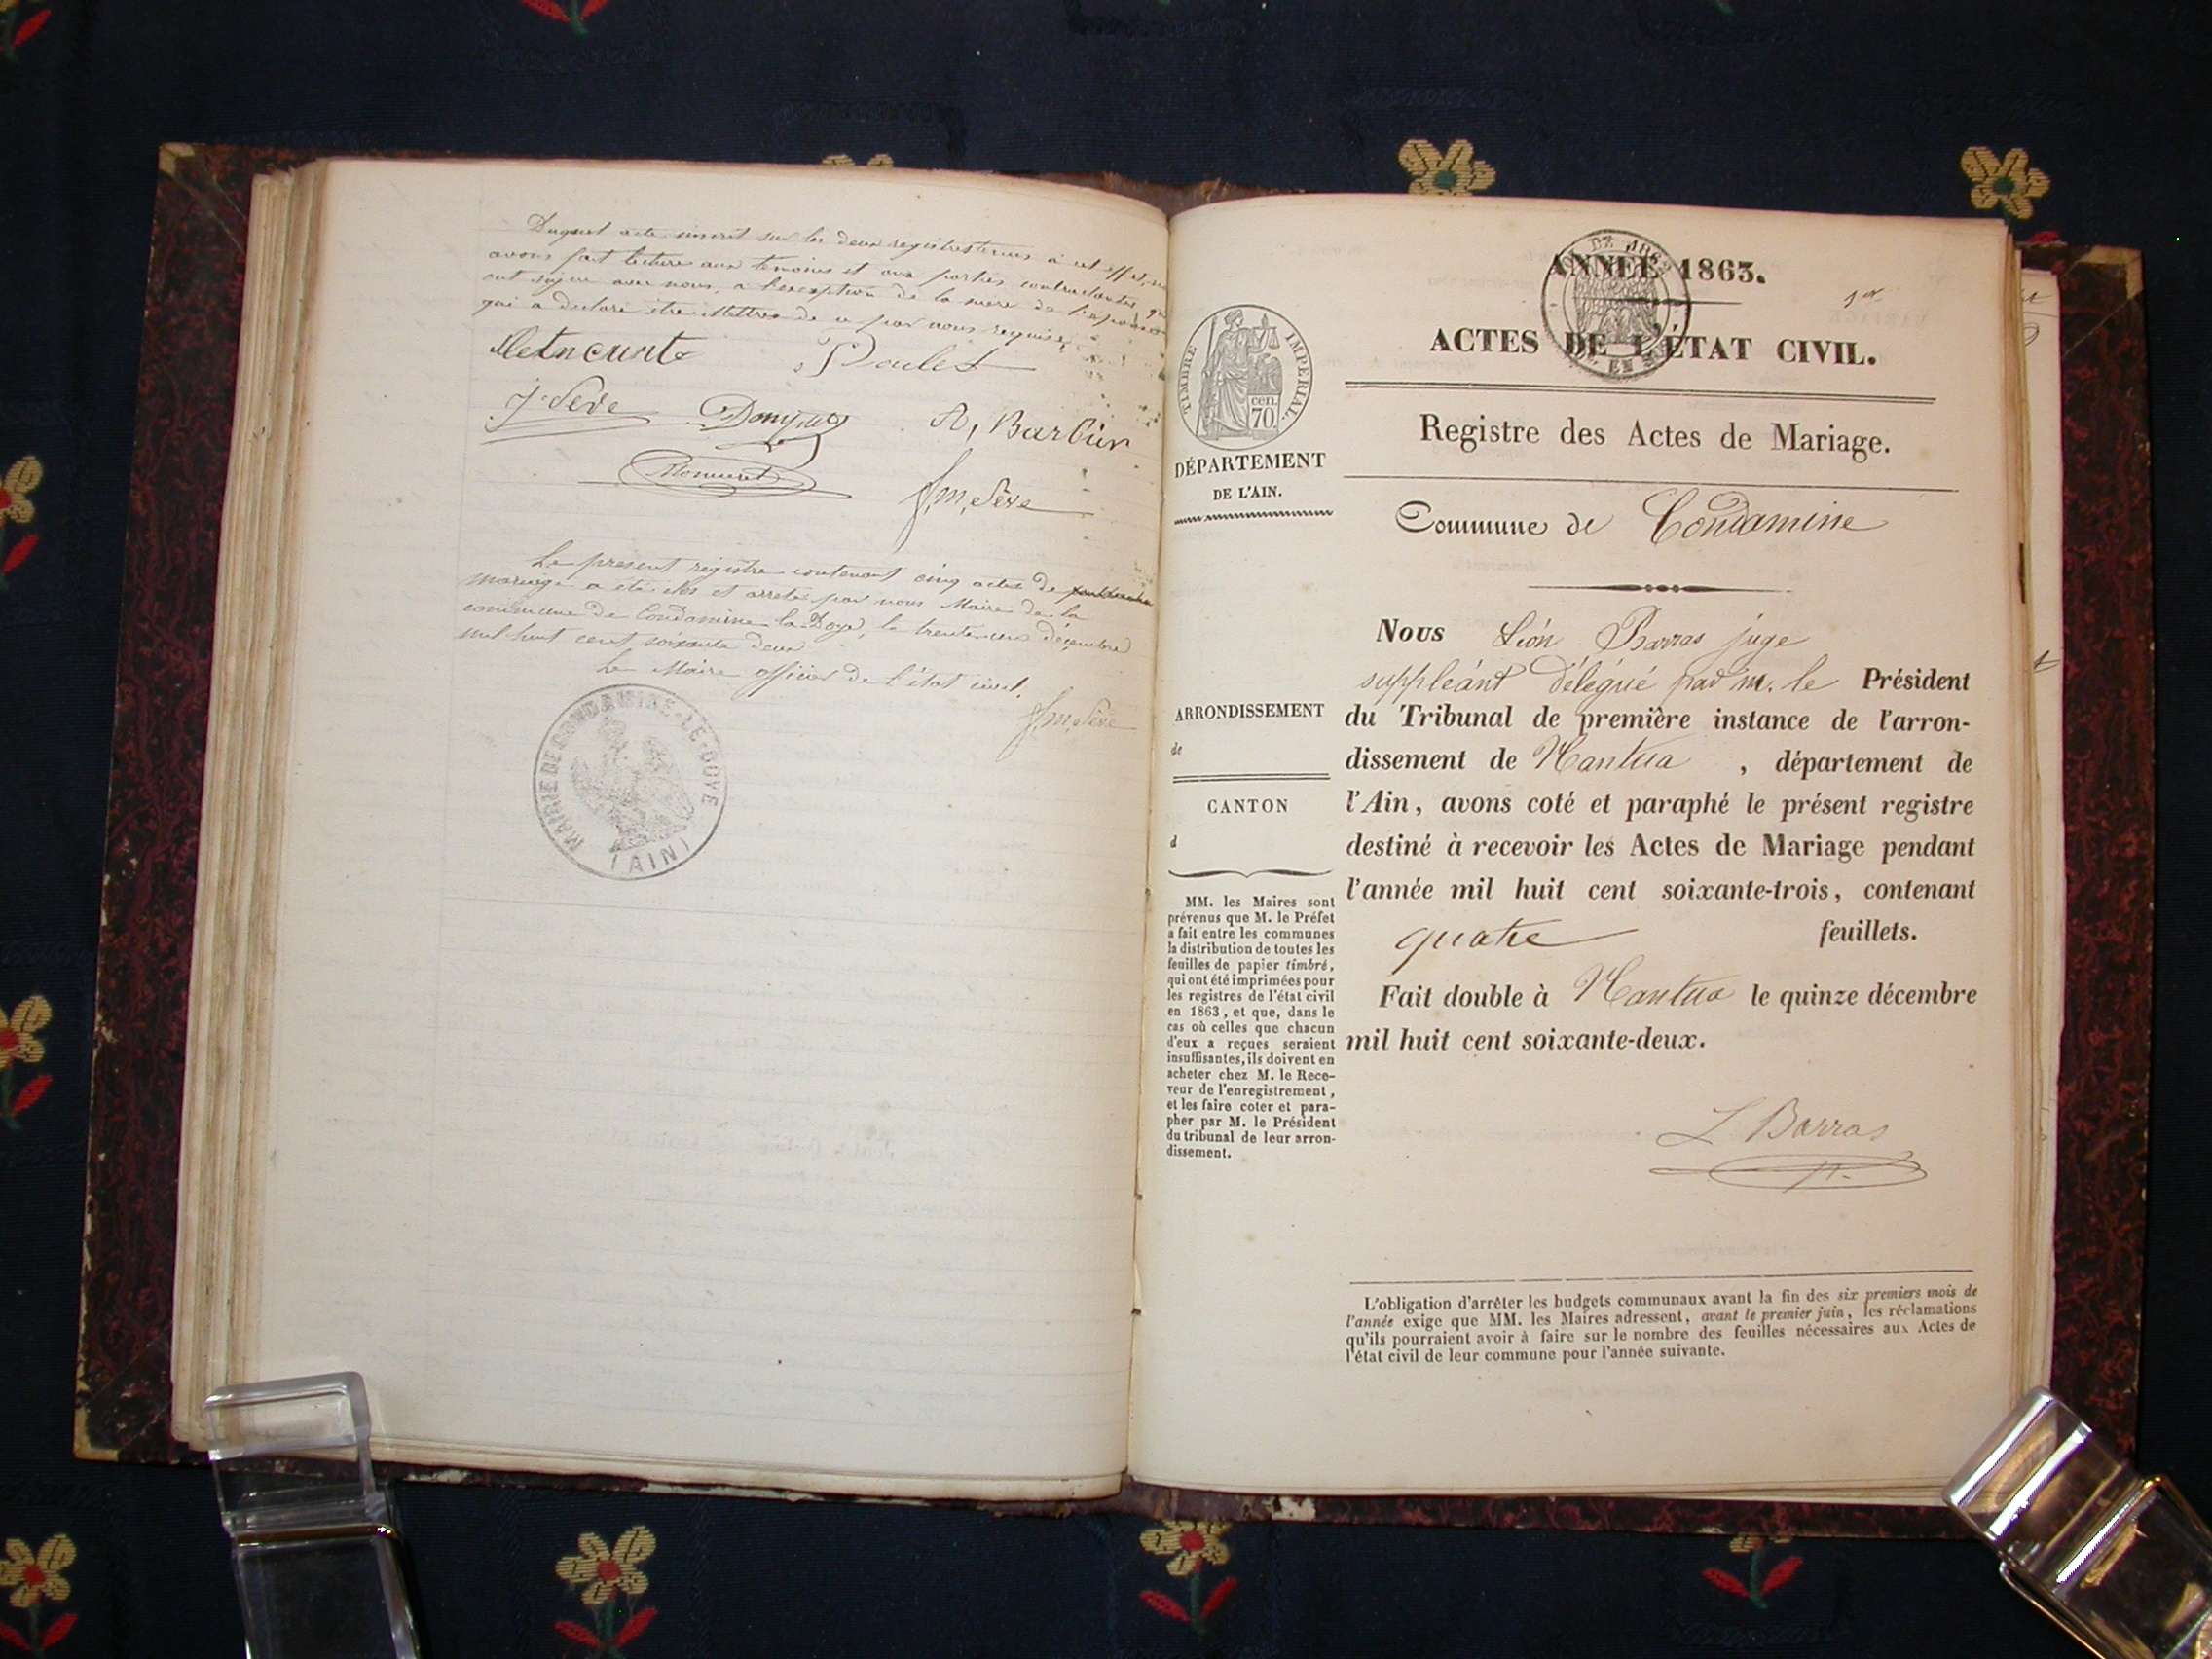 Duquel acte inscrit sur les deux registres tenus à cet effet, nous
avons fait lecture aux temoins et aux parties contractantes, qui
ont signé avec nous, a l'exception de la mere de l'epouse
qui a declaré être illettrée de ce par nous requise.
Poulet
J Seve
A, Barbier
J,m, Sève
Le present registre contenant cinq actes de
mariage a été clos et arreté par nous Maire de la
commune de Condamine la Doye, le trente un décembre
mil huit cent soixante deux
Le Maire officier de l'état civil.
J,m, Sève
MAIRIE DE CONDAMINE-LE-DOYE
(AIN)
ANNÉE 1863.
1er
ACTES DE L'ÉTAT CIVIL.
Registre des Actes de Mariage.
Commune de Condamine
TIMBRE IMPERIAL.
cen.
70
DÉPARTEMENT
DE L'AIN.
ARRONDISSEMENT
de
CANTON
d
MM. les Maires sont
prévenus que M. le Préfet
a fait entre les communes
la distribution de toutes les
feuilles de papier timbré,
qui ont été imprimées pour
les registres de l'état civil
en 1863, et que, dans le
cas où celles que chacun
d'eux a reçues seraient
insuffisantes, ils doivent en
acheter chez M. le Rece-
veur de l'enregistrement,
et les faire coter et para-
pher par M. le Président
du tribunal de leur arron-
dissement.
Nous Léon Barras juge
suppléant délégué par m. le Président
du Tribunal de première instance de l'arron-
dissement de Nantua, département de
l'Ain, avons coté et paraphé le présent registre
destiné à recevoir les Actes de Mariage pendant
l'année mil huit cent soixante-trois, contenant
quatre feuillets.
Fait double à Nantua le quinze décembre
mil huit cent soixante-deux.
L Barras
L'obligation d'arrêter les budgets communaux avant la fin des six premiers mois de
l'année exige que MM. les Maires adressent, avant le premier juin, les réclamations
qu'ils pourraient avoir à faire sur le nombre des feuilles nécessaires aux Actes de
l'état civil de leur commune pour l'année suivante.